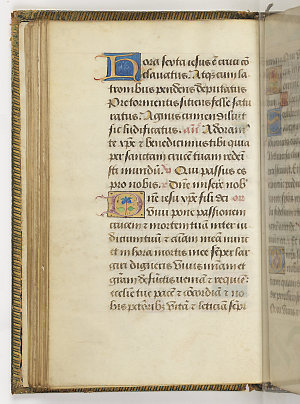 Hora sexta iesus ē cruci cō
clavatus. Atq; cum la
tronibus pendens deputatus
Pre tormentis sitiens felle satu
ratus. Agnus crimen diluit
sic ludificatus. añ. Adoram'
te xp̄e et benedicimus tibi quia
per sanctam crucē tuam redem
isti mundū. Qui passus es
pro nobis. Dñe miserē nob'
Dñe iesu xp̄e fili dei
vivi pone passionem
crucem et mortem tuam inter iu
dicium tuū et aīam meam nunc
et in hora mortis mee et sēper lar
giri digneris vivis mīam et
grām defūctis veniā et requiē
ecclesie tue pacē et cōcordiā et no
bis pctōribus vitā et leticiā sēpi